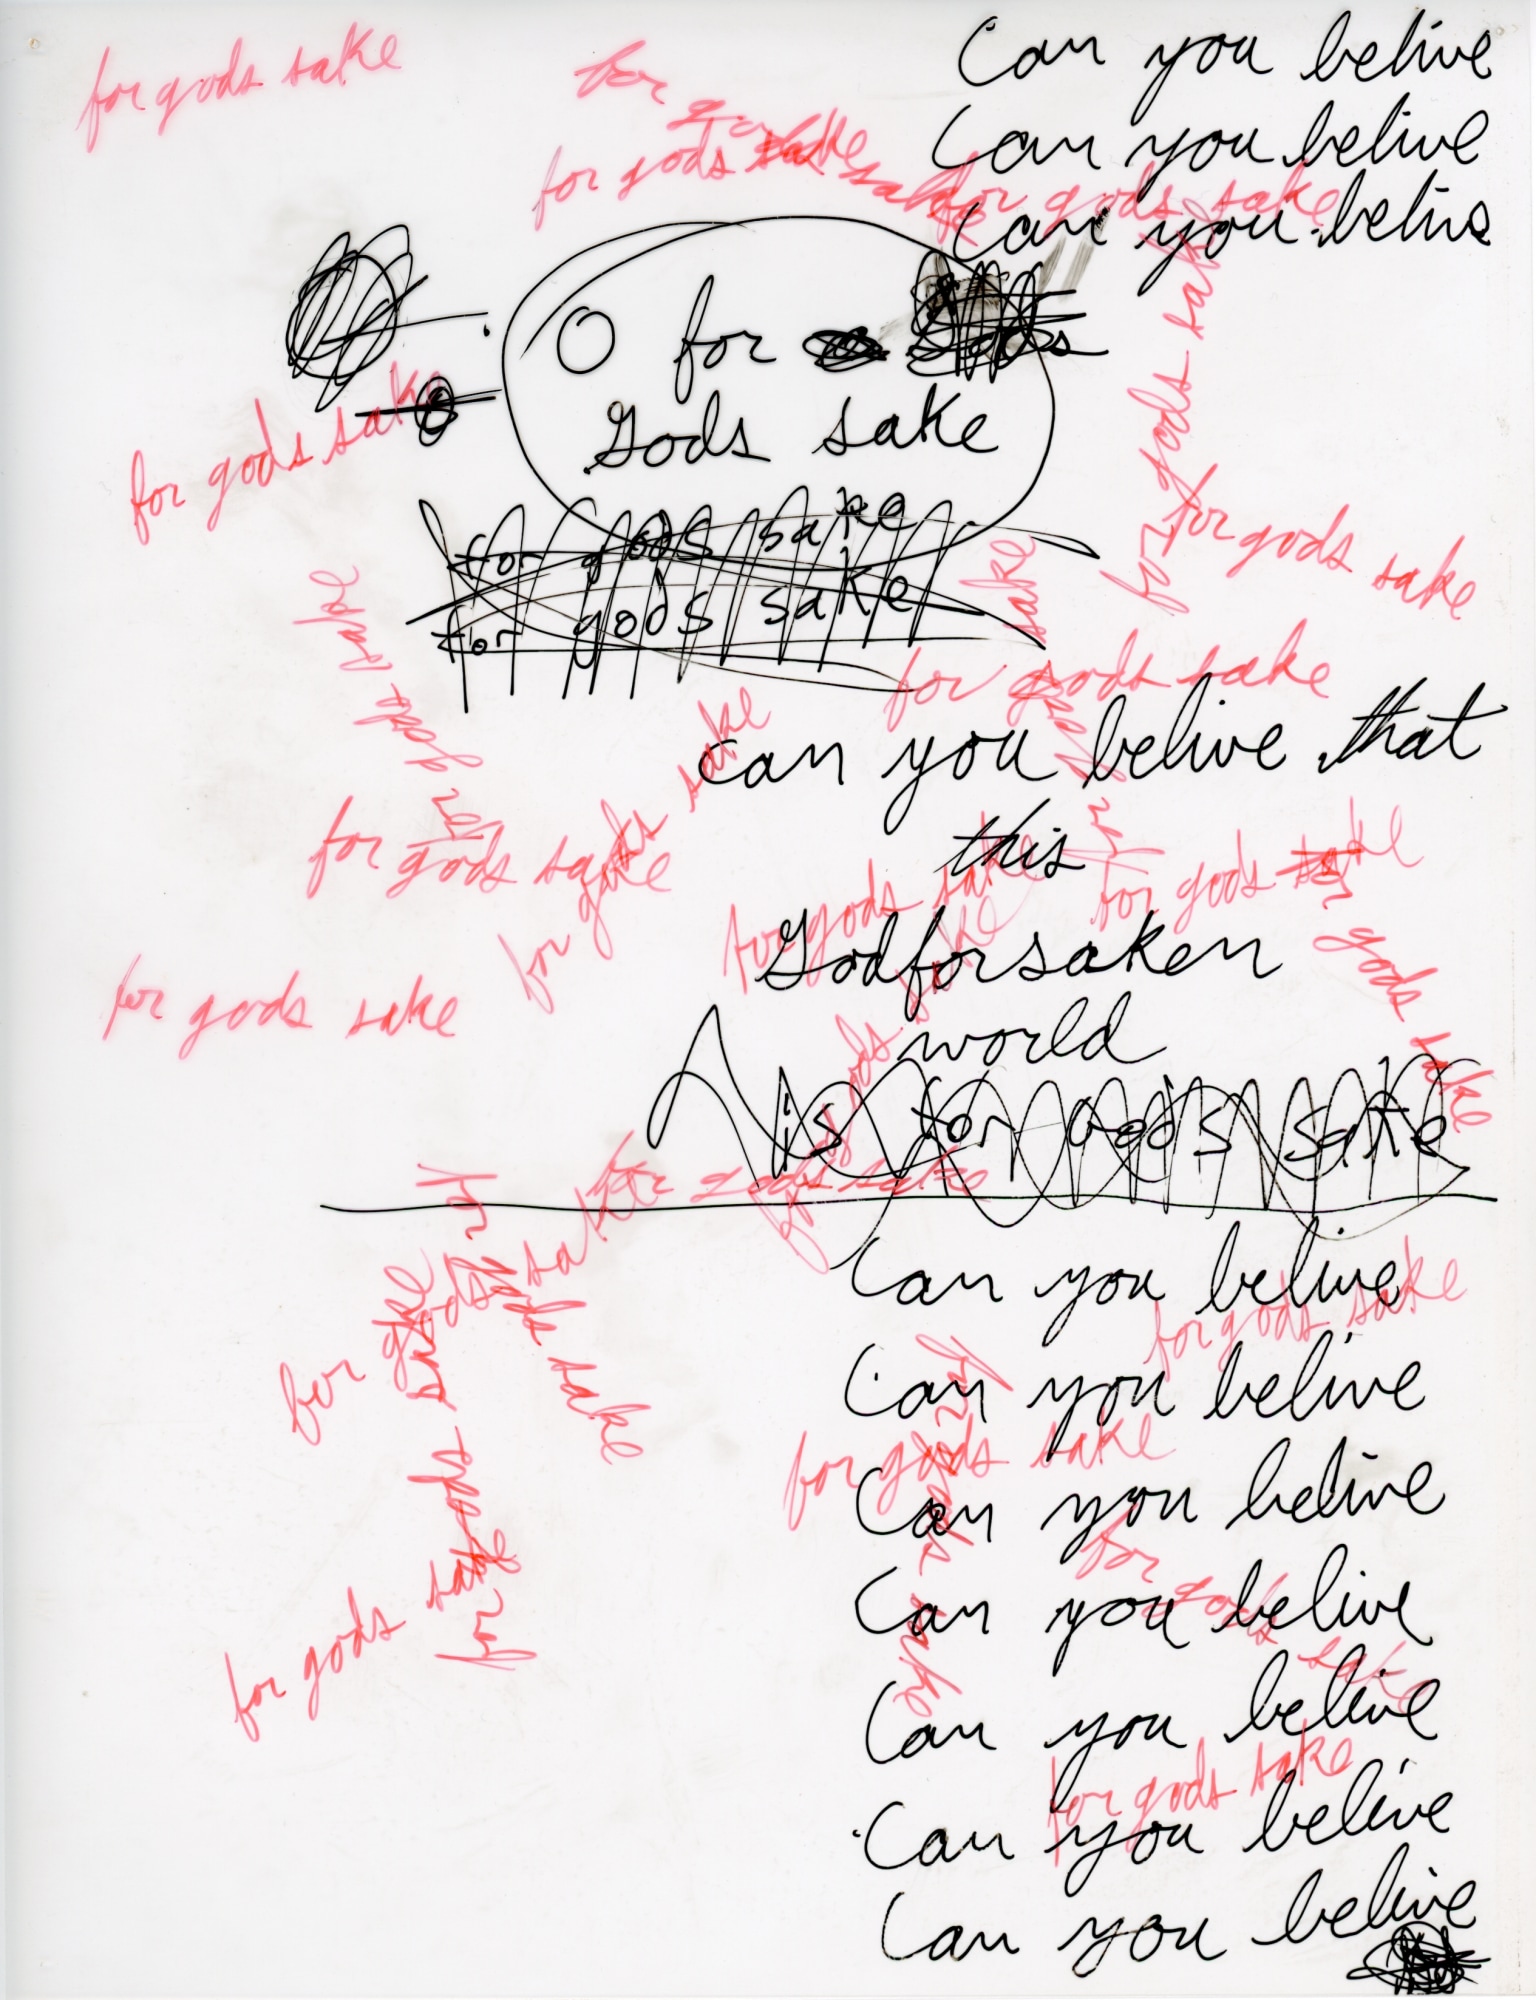 for gods sake
Can you belive
for gods sake
Can you belive
for gods sake
for gods sake
Can you belive
for gods sake
O for
Gods sake
for gods sake
for gods sake
for gods sake
for gods sake
for gods sake
for gods sake
for gods sake
for gods sake
can you belive that
this
for gods sake
for gods sake
for gods sake
for gods sake
for gods sake
for gods sake
Godforsaken
world
for gods sake
for gods sake
is for gods sake
for gods sake
for gods sake
for gods sake
for gods sake
Can you belive
for gods sake
Can you belive
for gods sake
for gods sake
Can you belive
for gods sake
for gods sake
Can you belive
for gods sake
Can you belive
for gods sake
Can you belive
Can you belive